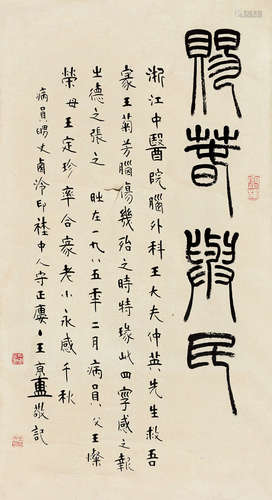 賜春民
浙江中醫院腦外科王大夫仲英先生救吾
家王菊芳腦傷幾殆之時特篆此四字感之報
之德之張之 時在一九八五年二月病員父王燦
榮母王定珍率合家老小永感千秋
病員甥丈西泠印社中人守正廔主王京盙敬記